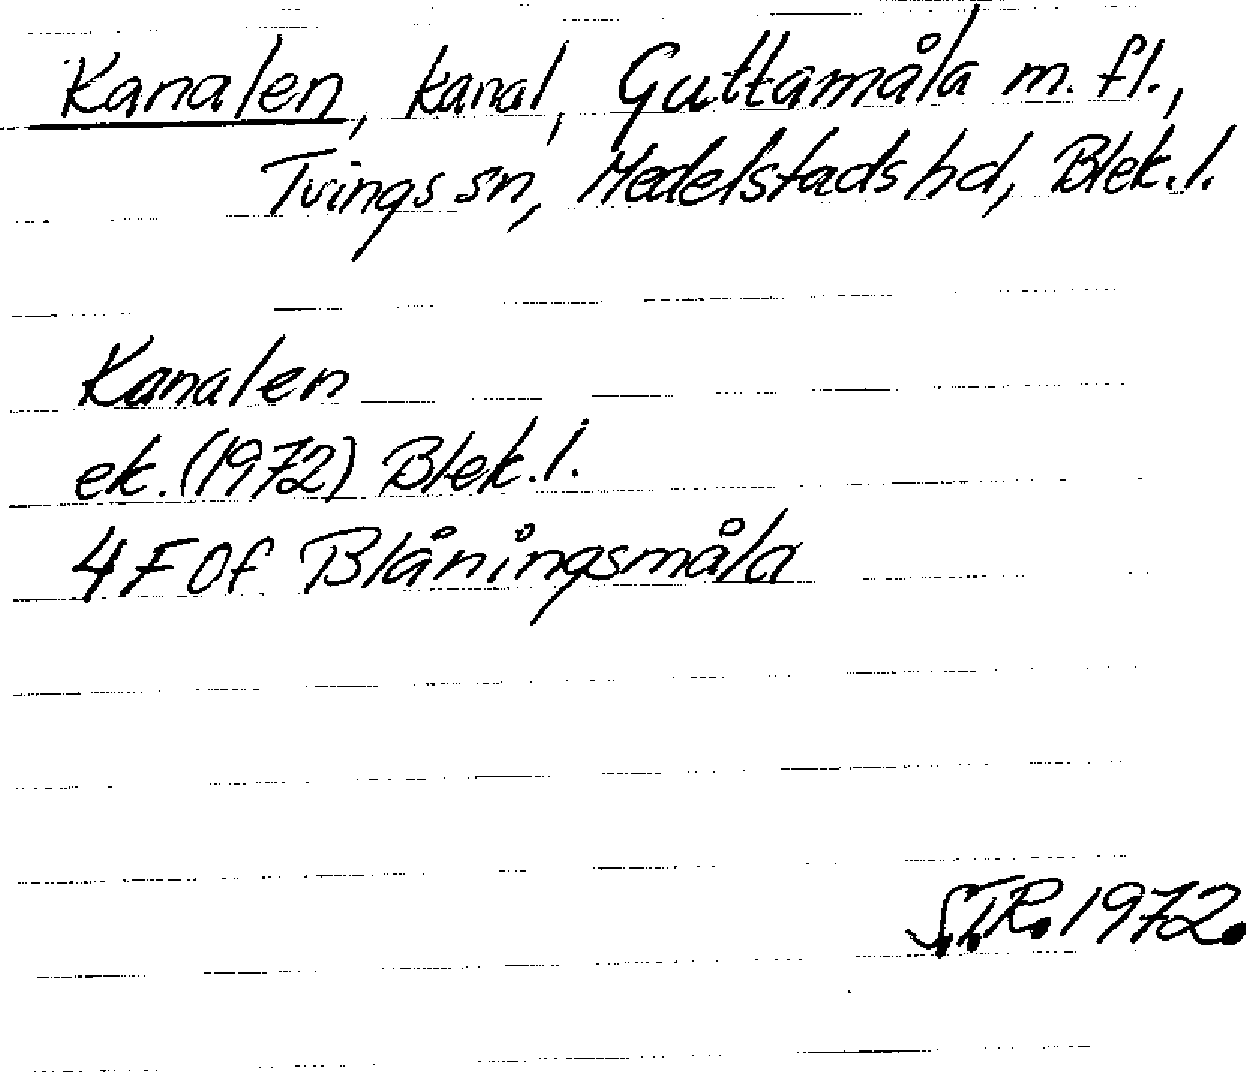 Kanalen, kanal, Guttamåla m. fl.,
Tvings sn, Medelstads hd, Blek. l.
Kanalen
ek. (1972) Blek. l.
4F 0f Blåningsmåla
S.T.R. 1972.